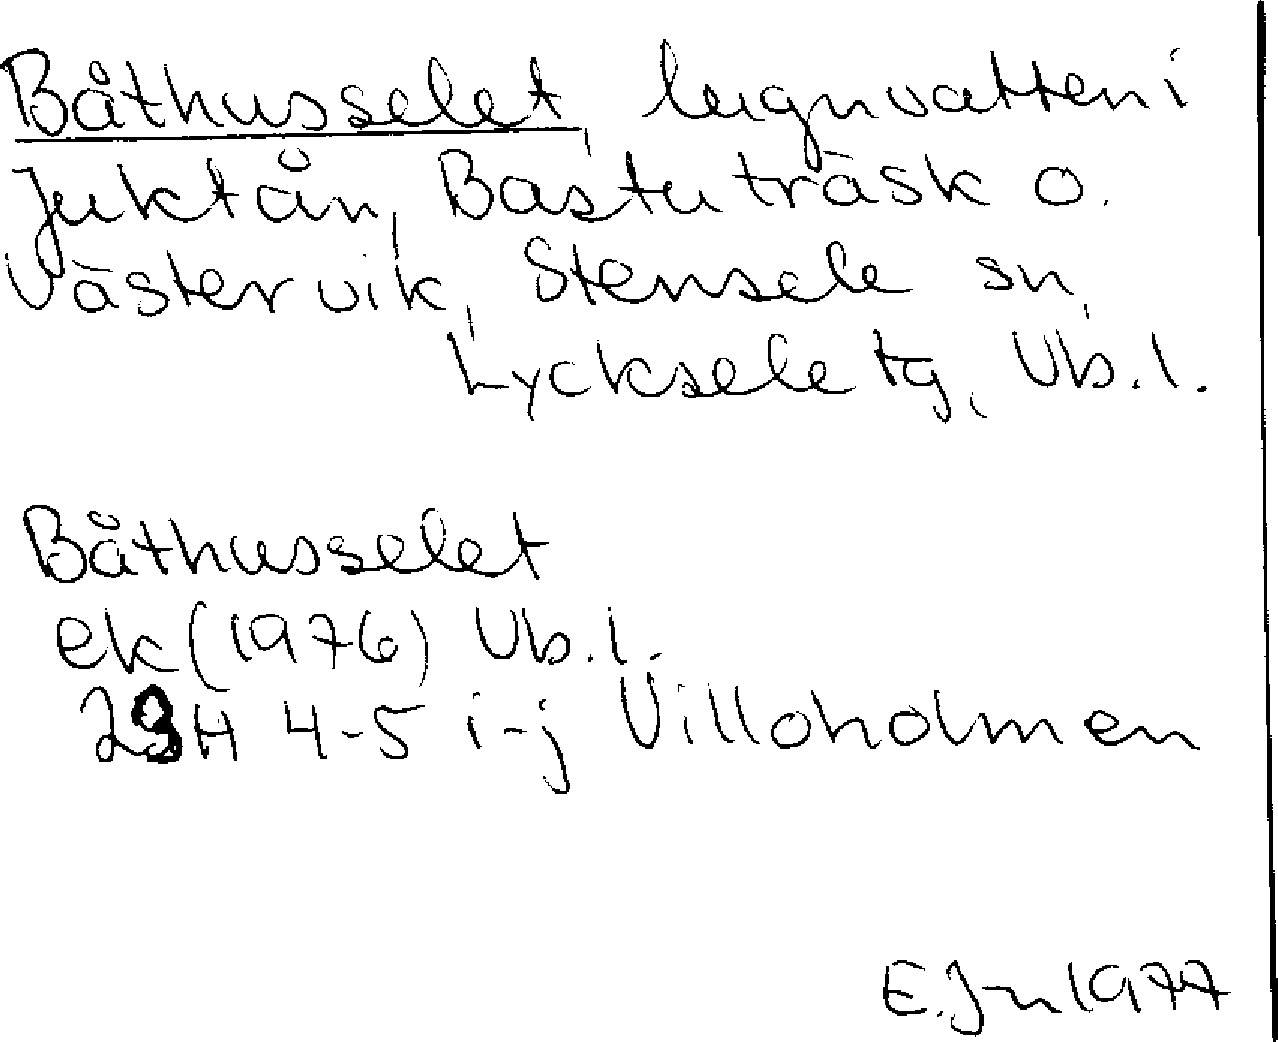 Båthusselet, lugnvatten i
Juktån, Bastuträsk o.
Västervik, Stensele sn,
Lycksele tg, Vb. l.
Båthusselet
ek (1976) Vb. l.
23H 4-5 i-j Villoholmen
E.Jn 1977